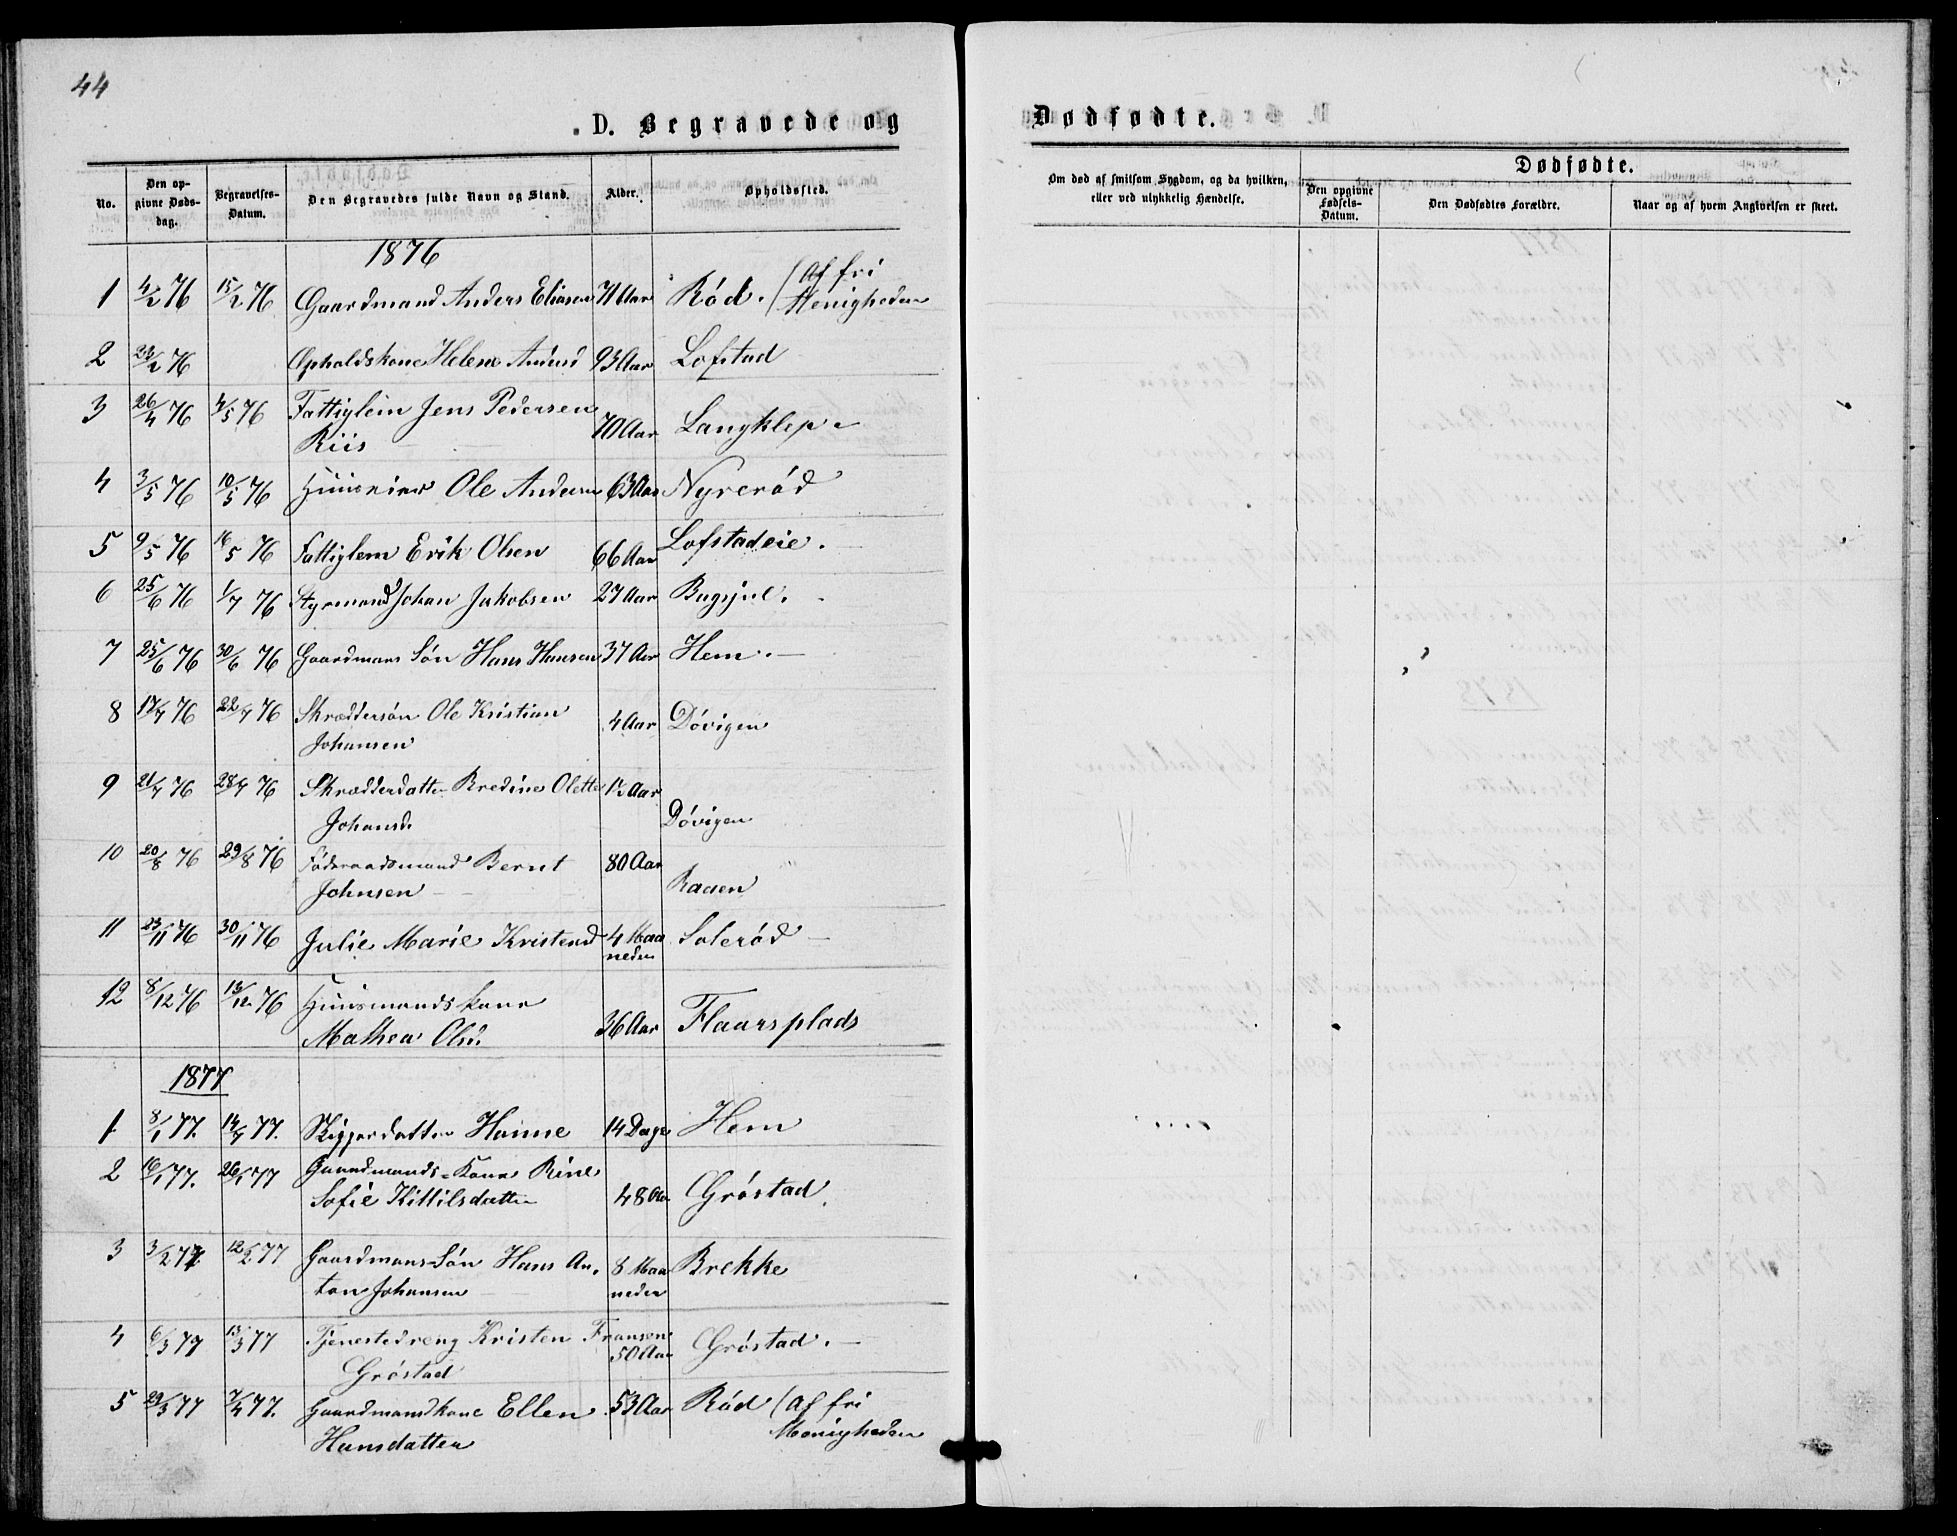 44
D. Begravede og
Dødfødte.
No.
Den opgivne Døds-dag.
Begravelses-Datum.
Den Begravedes fulde Navn og Stand.
Alder.
Opholdssted.
Om død af smitsom Sygdom, og da hvilken, eller ved ulykkelig Hændelse.
Dødfødte.
Den opgivne Fødsels-Datum.
Den Dødfødtes Forældre.
Naar og af hvem Angivelsen er skeet.
1876
1 4/2 76 15/2 76 Gaardmand Anders Eliasen 71 Aar Rød. (Af fri
Menigheden
2 22/2 76 Opholdskone Helene Andersd 93 Aar Lofstad
3 26/4 76 4/5 76 Fattiglem Jens Pedersen
Riis 70 Aar Langklep
4 3/5 76 10/5 76 Ole Andersen 63 Aar Nyrerød
5 9/5 76 16/5 76 Fattiglem Erik Olsen 66 Aar Lofstadeie.
6 25/6 76 1/7 76 Styrmand Johan Jakobsen 27 Aar
7 25/6 76 30/6 76 Gaardmans Søn Hans Hansen 37 Aar Hem.
8 17/7 76 22/7 76 Skræddersøn Ole Kristian
Johansen 4 Aar Døvigen
9 21/7 76 28/7 76 Skrædderdatter Bredine Olette 1½ Aar
Johansd. Døvigen
10 20/8 76 29/8 76 Føderaadsmand Bernt 80 Aar
Johnsen Raaen
11 23/11 76 30/11 76 Julie Marie Kristensd 4 Maa Solerød
neder
12 8/12 76 13/12 76 Huusmands kone
Mathea Olsd. 36 Aar Flaarsplads
1877
1 8/1 77. 14/1 77. Skipperdatter Hanne 14 Dage Hem
2 16/1 77. 26/1 77 Gaardmands-Kone Rine
Sofie Kittilsdatter 48 Aar Grøstad.
3 3/2 77 12/2 77 Gaardmans-Søn Hans An. 8 Maa Brekke
ton Johansen neder
4 6/3 77 13/3 77 Tjenestedreng Kristen Fransen
Grøstad 50 Aar Grøstad.
5 29/3 77 7/4 77. Gaardmandkone Ellen 53 Aar Rød (Af fri
Hansdatter Menigheden